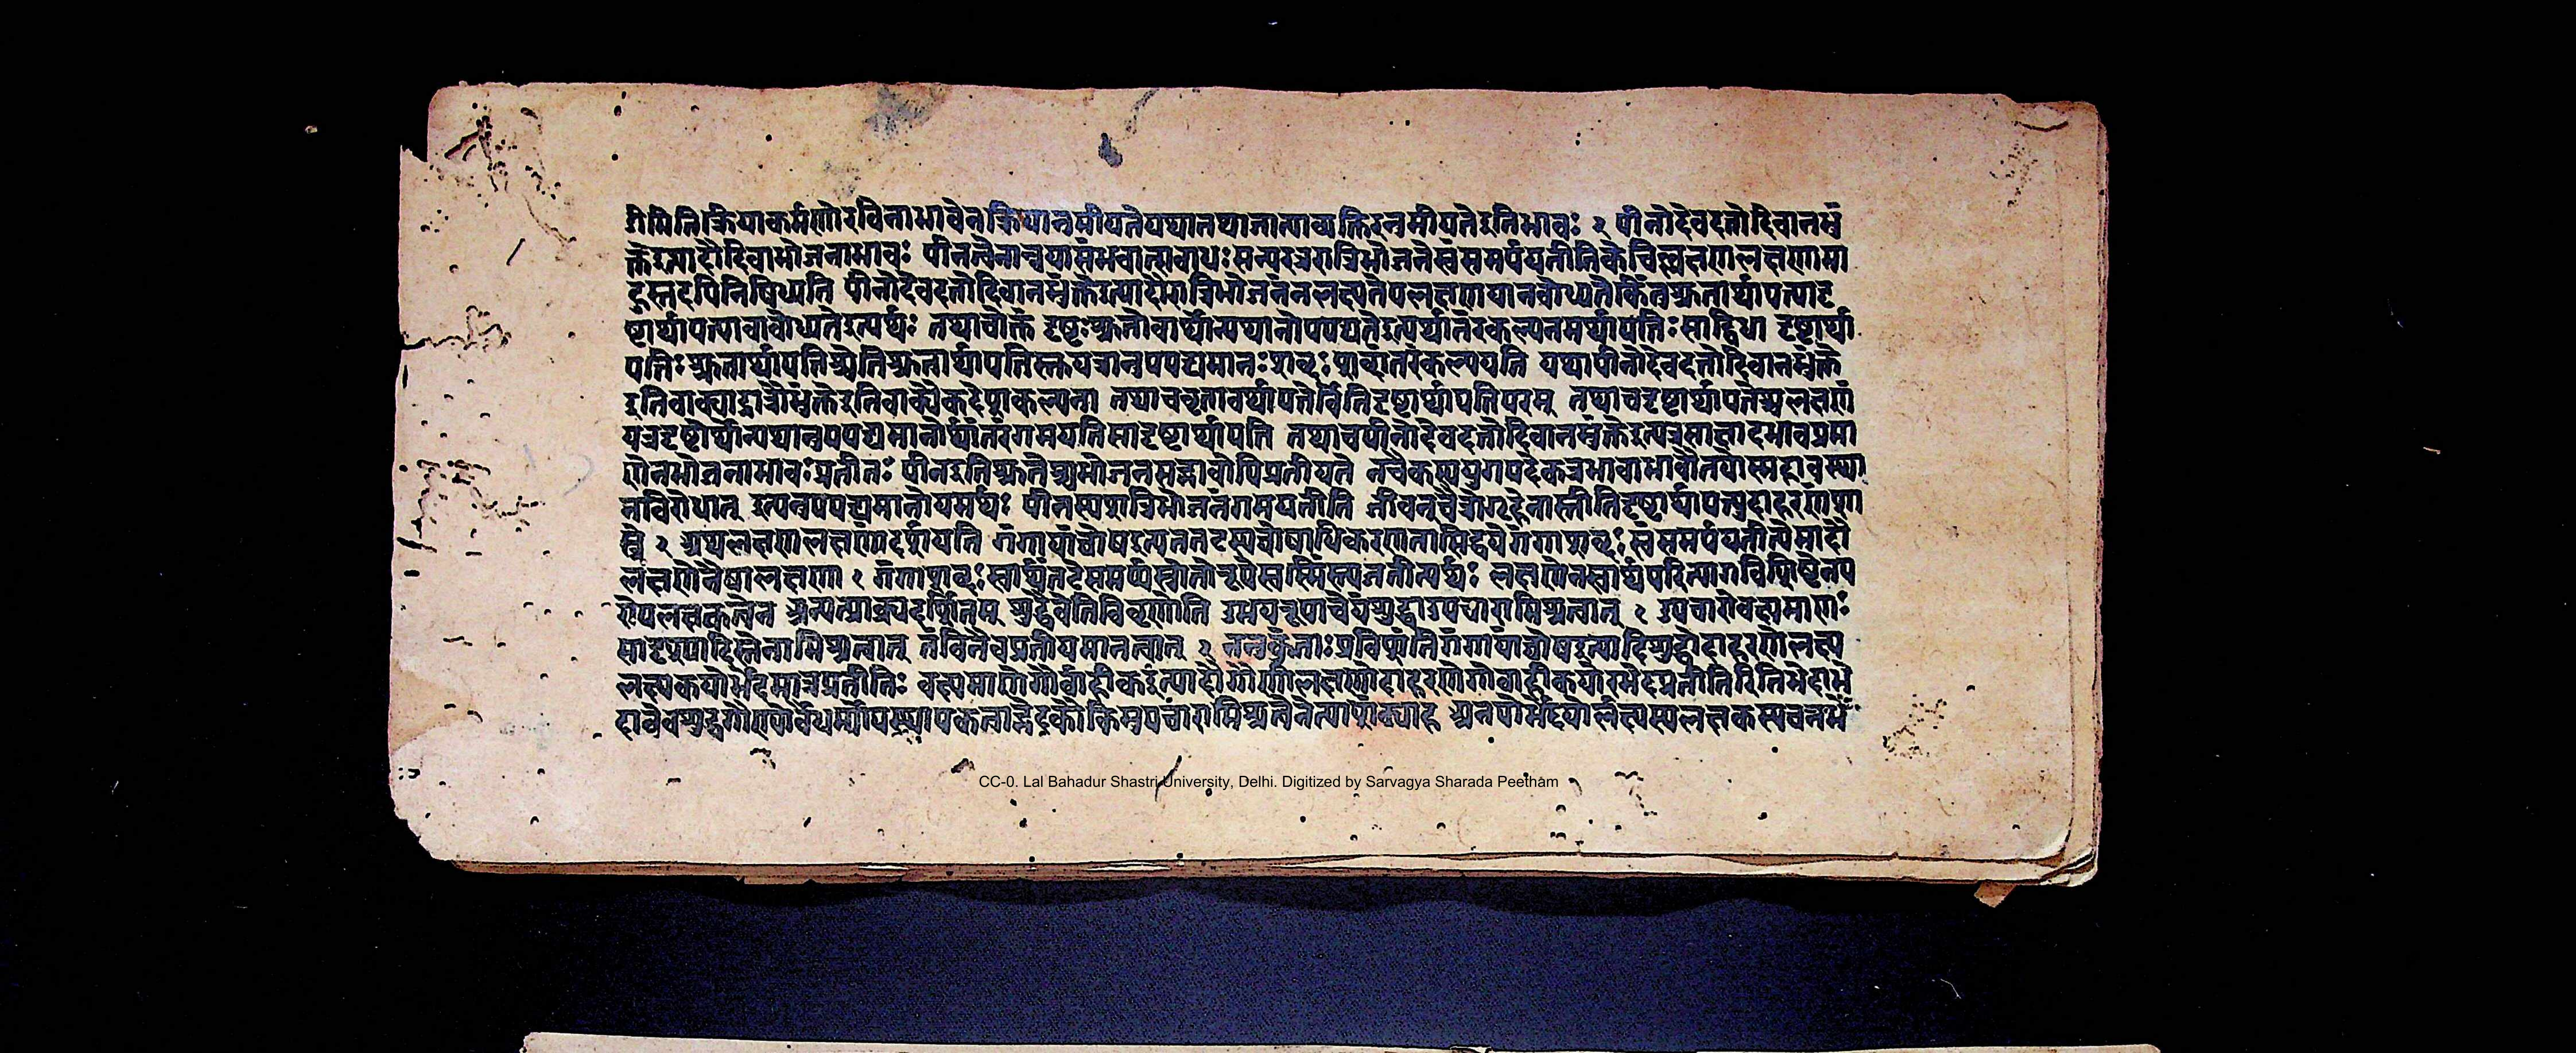 गीमितिक्रियाकर्मणोरविनाभावेनक्रियानुमीयतेयथातथाजात्याव्यक्तिरनुमीयतेइतिभावः २ पीनोदेवदत्तोदिवानभुं
क्तेइत्यादौदिवाभोजनाभावः पीनत्वेनान्वयासंभवात्सबाधःसन्परत्ररात्रिभोजनेस्वंसमर्पयतीतिकेचिल्लक्षणलक्षणामा
हुस्तदपिनिषिध्यति पीनोदेवदत्तोदिवानभुंक्तेइत्यादौरात्रिभोजनंनलक्ष्यतेपलक्षणयानबोध्यतेकिंतुश्रुतार्थापत्त्यादृ
ष्टार्थापत्त्यावाबोध्यतेइत्यर्थः तथाचोक्तं दृष्टःश्रुतोवार्थोन्यथानोपपद्यतेइत्यर्थांतरकल्पनमर्थापत्तिःसाद्विधा दृष्टार्था
पत्तिःश्रुतार्थापत्तिश्चेतिश्रुतार्थापत्तिस्तुयत्रानुपपद्यमानःशब्दःशब्दांतरंकल्पयति यथापीनोदेवदत्तोदिवानभुंक्ते
इतिवाक्याद्रात्रौभुंक्तेइतिवाक्यैकदेशकल्पना तथाचश्रुतावर्थापत्तेर्वेतिदृष्टार्थापत्तिपरम् तथाचदृष्टार्थापत्तेश्चलक्षणं
यत्रदृष्टोर्थोन्यथानुपपद्यमानोर्थांतरंगमयतिसादृष्टार्थापत्ति तथाचपीनोदेवदत्तोदिवानभुंक्तेइत्यत्रसाक्षादभावप्रमा
णेनभोजनाभावःप्रतीतः पीनइतिश्रुतेश्चभोजनसद्भावोपिप्रतीयते नचैकस्ययुगपदेकत्रभावाभावौतयोस्सहावस्था
नविरोधात् इत्यनुपपद्यमानोयमर्थः पीनस्यरात्रिभोजनंगमयतीति जीवन्चैत्रोगृहेनास्तीतिदृष्टार्थापत्त्युदाहरणंशा
स्त्रे २ अथलक्षणलक्षणांदर्शयति गंगायांघोषइत्यत्रतटस्यघोषाधिकरणतासिद्धयेगंगाशब्दःस्वंसमर्पयतीत्येमादौ
लक्षणेनैषालक्षणा १ गंगाशब्दःस्वार्थंतटेसमर्प्यस्रोतोरूपेस्वस्मिंस्त्यजतीत्यर्थः लक्षणेनस्वार्थपरित्यागविशिष्टेनप
रोपलक्षकत्वेन अन्यत्प्राक्प्रदर्शितम् शुद्धैवेतिविवृणोति उभयरूपाचेयंशुद्धाउपचारामिश्रत्वात् १ उपचारोवक्ष्यमाणः
सादृश्यादिस्तेनामिश्रत्वात् तंविनैवप्रतीयमानत्वात् २ ननुकुंताःप्रविशंतिगंगायांघोषइत्यादिशुद्धोदाहरणेलक्ष्य
लक्षकयोर्भेदमात्रप्रतीतिः वक्ष्यमाणगौर्वाहीकइत्यादौगौणीलक्षणोदाहरणेगोवाहीकयोरभेदप्रतीतिरितिभेदाभे
दावेवशुद्धगौणयोर्वैधर्म्योपस्थापकत्वाद्भेदकौकिमुपचारामिश्रत्वेनेत्याशंक्याह अनयोर्भेदयोर्लक्ष्यस्यलक्षकस्यचनभे
CC-0. Lal Bahadur Shastri University, Delhi. Digitized by Sarvagya Sharada Peetham